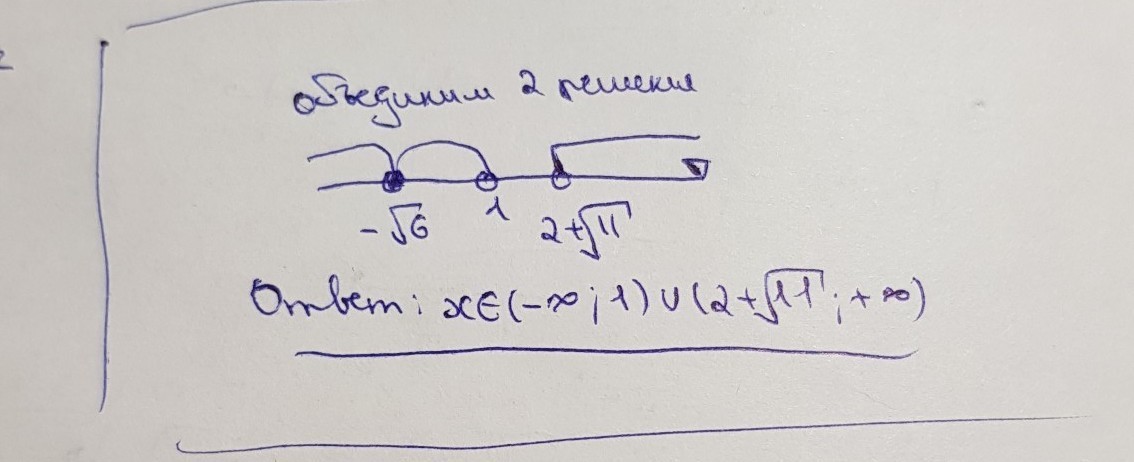 объединим 2 решения
-√6 1 2+√11
Ответ: x∈(-∞; 1) ∪ (2+√11; +∞)